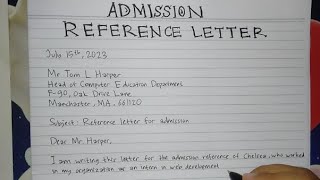 ADMISSION
REFERENCE LETTER.
July 15th, 2023
Mr Tom L Harper
Head of Computer Education Department
F-90, Oak Drive Lane
Manchaster, MA. 661120
Subject: Reference letter for admission
Dear Mr. Harper,
I am writing this letter for the admission reference of Chelsea, who worked
in my organization as an intern in web development